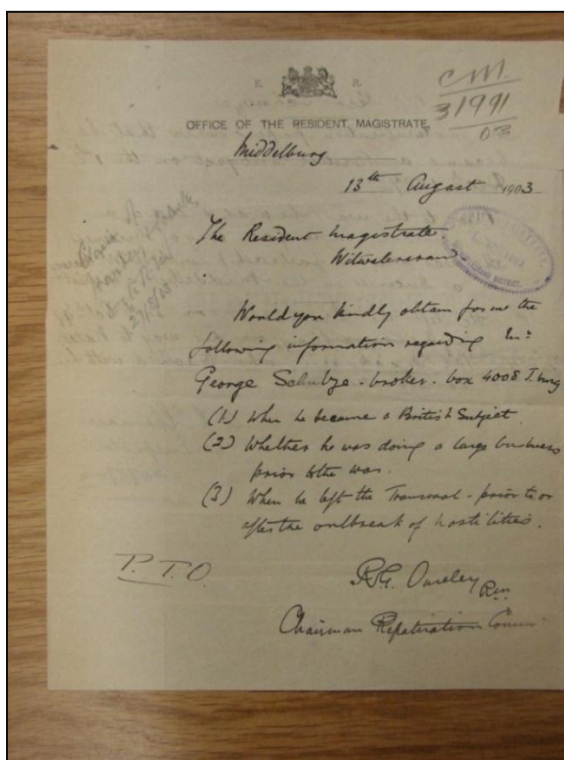 E. R.
C.M.
31991
03
OFFICE OF THE RESIDENT MAGISTRATE,
Middelburg
13th August 1903
The Resident Magistrate.
Witwatersrand
Would you kindly obtain for me the
following information regarding Mr:
George Schulze - broker - box 4008 J.burg
(1) When he became a British Subject.
(2) Whether he was doing a large business
prior to the war.
(3) When he left the Transvaal - prior to or
after the outbreak of hostilities.
P.T.O.
R.G. Ouseley
R.M.
Chairman Repatriation Comm: